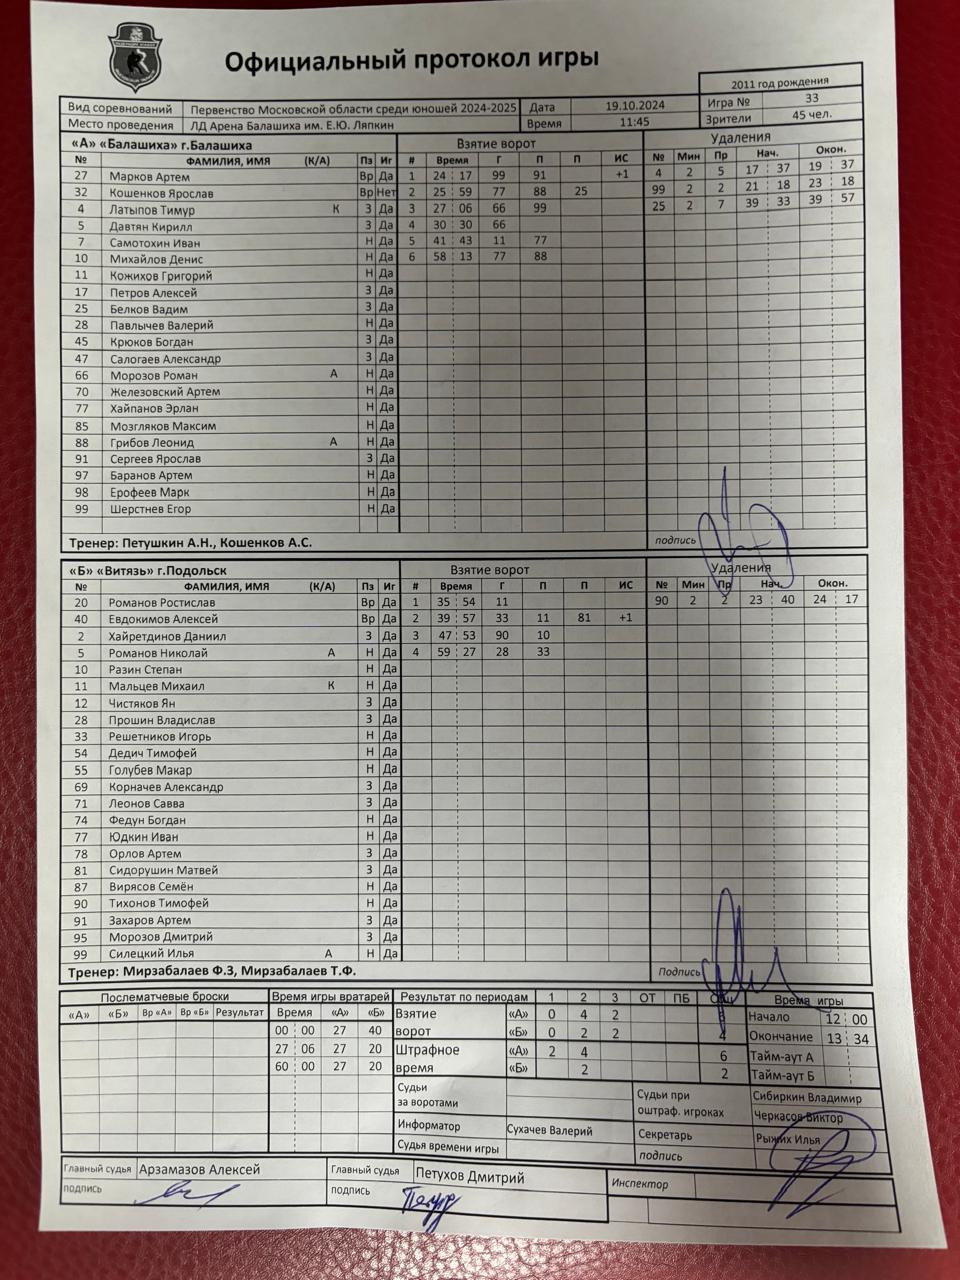 Официальный протокол игры
2011 год рождения
Вид соревнований Первенство Московской области среди юношей 2024-2025 Дата 19.10.2024 Игра № 33
Место проведения ЛД Арена Балашиха им. Е.Ю. Ляпкин Время 11:45 Зрители 45 чел.
«А» «Балашиха» г.Балашиха Взятие ворот Удаления
№ ФАМИЛИЯ, ИМЯ (К/А) Пз Иг # Время Г П П ИС № Мин Пр Нач. Окон.
27 Марков Артем Вр Да 1 24 17 99 91 +1 4 2 5 17 37 19 37
32 Кошенков Ярослав Вр Нет 2 25 59 77 88 25 99 2 2 21 18 23 18
4 Латыпов Тимур К З Да 3 27 06 66 99 25 2 7 39 33 39 57
5 Давтян Кирилл З Да 4 30 30 66
7 Самотохин Иван Н Да 5 41 43 11 77
10 Михайлов Денис Н Да 6 58 13 77 88
11 Кожихов Григорий Н Да
17 Петров Алексей З Да
25 Белков Вадим З Да
28 Павлычев Валерий Н Да
45 Крюков Богдан З Да
47 Салогаев Александр З Да
66 Морозов Роман А Н Да
70 Железовский Артем Н Да
77 Хайпанов Эрлан Н Да
85 Мозгляков Максим Н Да
88 Грибов Леонид А Н Да
91 Сергеев Ярослав З Да
97 Баранов Артем Н Да
98 Ерофеев Марк Н Да
99 Шерстнев Егор Н Да
Тренер: Петушкин А.Н., Кошенков А.С. подпись
«Б» «Витязь» г.Подольск Взятие ворот Удаления
№ ФАМИЛИЯ, ИМЯ (К/А) Пз Иг # Время Г П П ИС № Мин Пр Нач. Окон.
20 Романов Ростислав Вр Да 1 35 54 11 90 2 2 23 40 24 17
40 Евдокимов Алексей Вр Да 2 39 57 33 11 81 +1
2 Хайретдинов Даниил З Да 3 47 53 90 10
5 Романов Николай А Н Да 4 59 27 28 33
10 Разин Степан Н Да
11 Мальцев Михаил К Н Да
12 Чистяков Ян З Да
28 Прошин Владислав З Да
33 Решетников Игорь Н Да
54 Дедич Тимофей Н Да
55 Голубев Макар Н Да
69 Корначев Александр З Да
71 Леонов Савва З Да
74 Федун Богдан Н Да
77 Юдкин Иван Н Да
78 Орлов Артем З Да
81 Сидорушин Матвей З Да
87 Вирясов Семён Н Да
90 Тихонов Тимофей Н Да
91 Захаров Артем З Да
95 Морозов Дмитрий З Да
99 Силецкий Илья А Н Да
Тренер: Мирзабалаев Ф.З, Мирзабалаев Т.Ф. Подпись
Послематчевые броски Время игры вратарей Результат по периодам 1 2 3 ОТ ПБ Общ Время игры
«А» «Б» Вр «А» Вр «Б» Результат Время «А» «Б» Взятие ворот «А» 0 4 2 Начало 12 00
00 00 27 40 «Б» 0 2 2 4 Окончание 13 34
27 06 27 20 Штрафное время «А» 2 4 6 Тайм-аут А
60 00 27 20 «Б» 2 2 Тайм-аут Б
Судьи за воротами Судьи при оштраф. игроках Сибиркин Владимир
Черкасов Виктор
Информатор Сухачев Валерий Секретарь Рыжих Илья
Судья времени игры подпись
Главный судья Арзамазов Алексей Главный судья Петухов Дмитрий Инспектор
подпись подпись